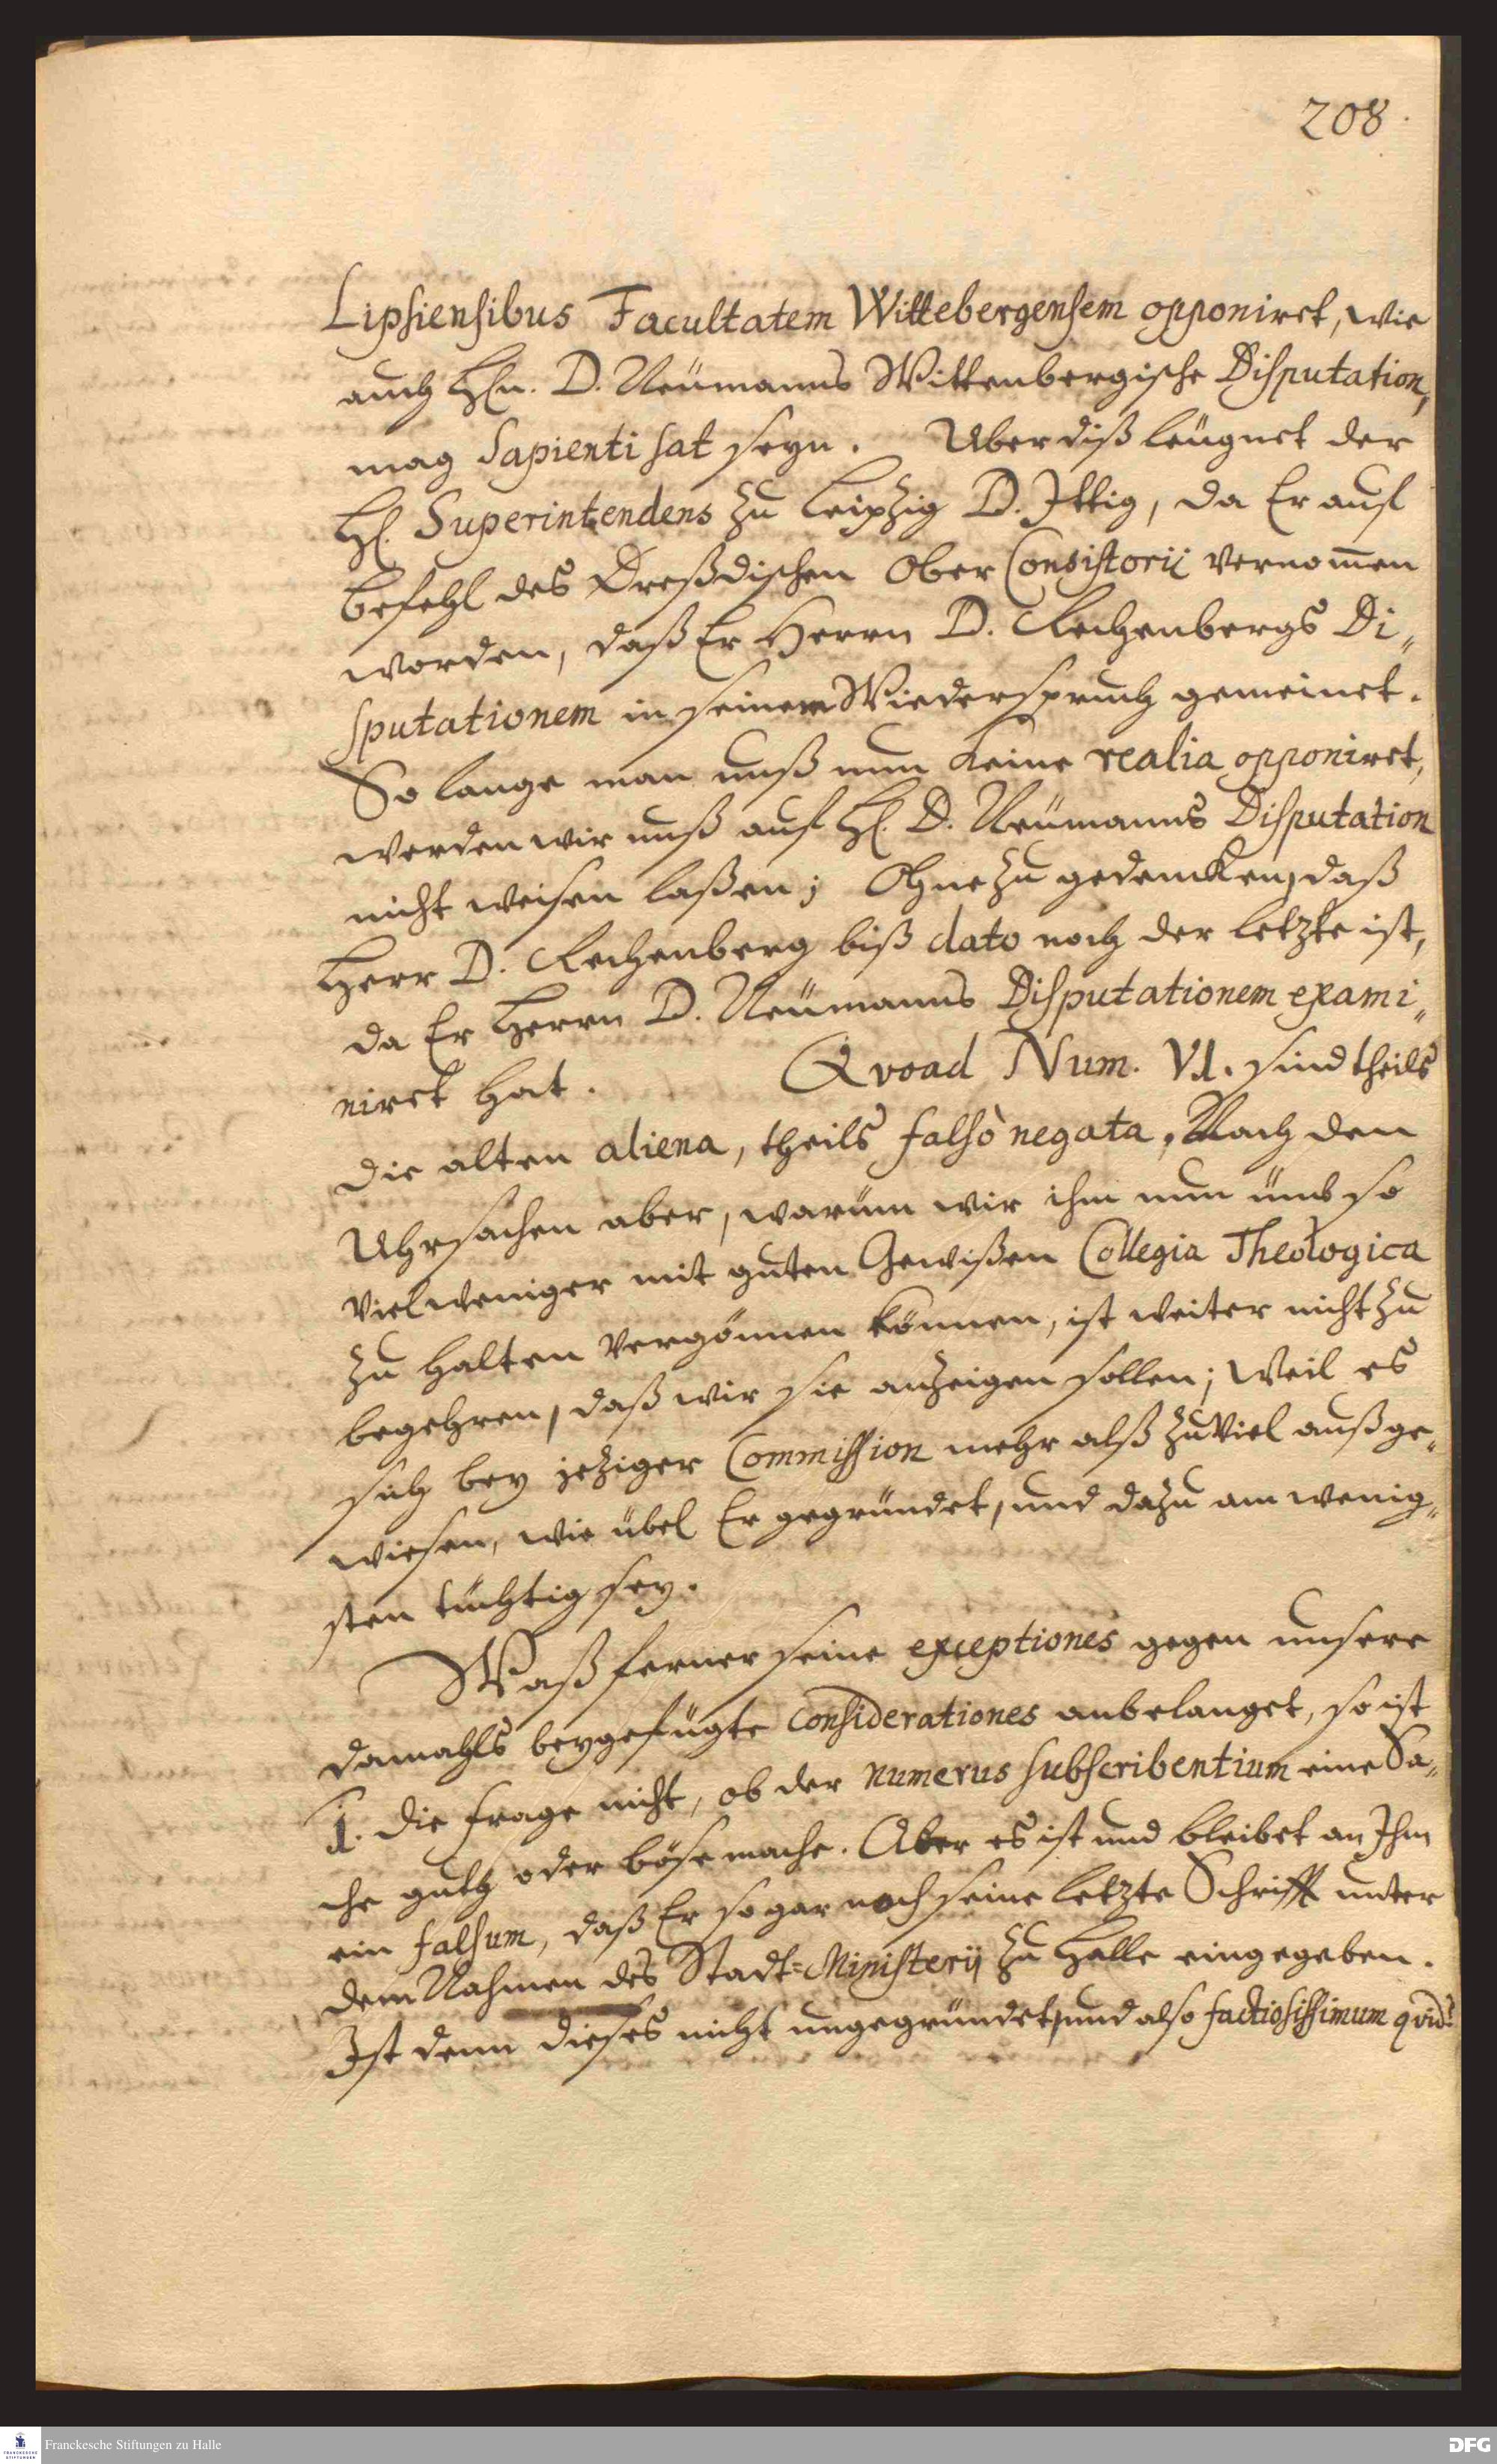 208.
Lipsiensibus Facultatem Wittebergensem opponiret, wie
auch Hn. D. Neümanns Wittenbergische Disputation,
mag Sapienti sat seyn. Uber diß leügnet der
H. Superintendens zu Leipzig D. Ittig, da Er auf
befehl des Dreßdischen Ober Consistorii vernom̅en
worden, daß Er Herrn D. Rechenbergs Di„
sputationem in seinem Wiederspruch gemeinet.
So lange man unß nun keine realia opponiret,
werden wir unß auf H. D. Neümanns Disputation
nicht weisen laßen; Ohne zu gedencken, daß
Herr D. Rechenberg biß dato noch der letzte ist,
da Er Herrn D. Neümanns Disputationem exami„
niret hat. Qvoad Num. VI. sind theils
die alten aliena, theils falsò negata, Nach den
Uhrsachen aber, warüm wir ihm nun ümb so
vielweniger mit guten Gewißen Collegia Theologica
zu halten vergönnen können, ist weiter nicht zu
begehren, daß wir sie anzeigen sollen; Weil es
sich bey jeziger Commission mehr alß zu viel außge„
wiesen, wie übel Er gegründet, und dazu am wenig„
sten tüchtig sey.
Waß ferner seine exceptiones gegen unsere
damahls beygefügte Considerationes anbelanget, so ist
1. die frage nicht, ob der numerus subscribentium eine Sa„
che guth oder böse mache. Aber es ist und bleibet an Ihm
ein falsum, daß Er so gar noch seine letzte Schrifft unter
dem Nahmen des Stadt-Ministerij zu Halle eingegeben.
Ist denn dieses nicht ungegründet, und also factiosissimum qvid?
Franckesche Stiftungen zu Halle
FRANCKESCHE STIFTUNGEN
DFG